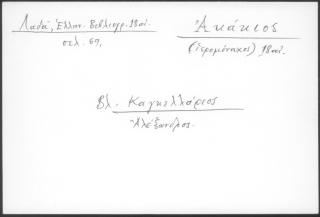 Λαδᾶ, Ἑλλην. Βιβλιογρ. 18 αἰ.
σελ. 67,
Ἀκάκιος
(ἱερομόναχος) 18 αἰ.
Βλ. Καγκελλάριος
Ἀλέξανδρος.